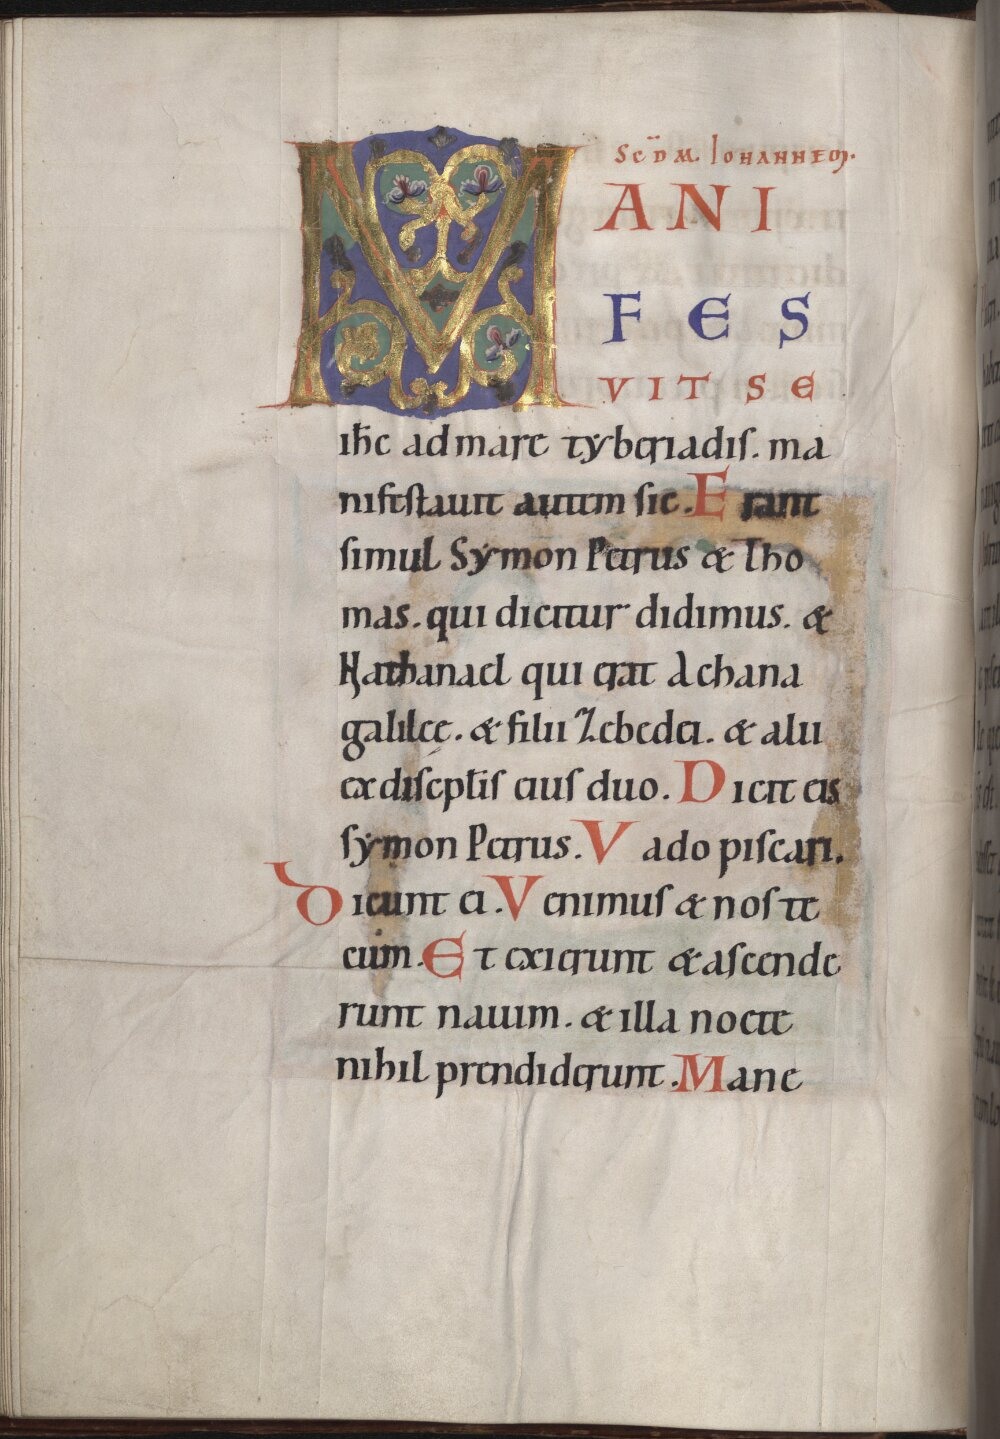 SCDM. IOHANNEM.
M ANI
FES
VIT SE
ih̄c ad mare tyberiadis. ma
nifestauit autem sic. Erant
simul Symon Petrus & Tho
mas. qui dicitur didimus. &
Nathanael qui erat A chana
galilee. & filii Zebedei. & alii
ex discipl̄is eius duo. Dicit eis
symon Petrus. Vado piscari.
Dicunt ei. Venimus & nos te
cum. Et exierunt & ascende
runt nauim. & illa nocte
nihil prendiderunt. Mane